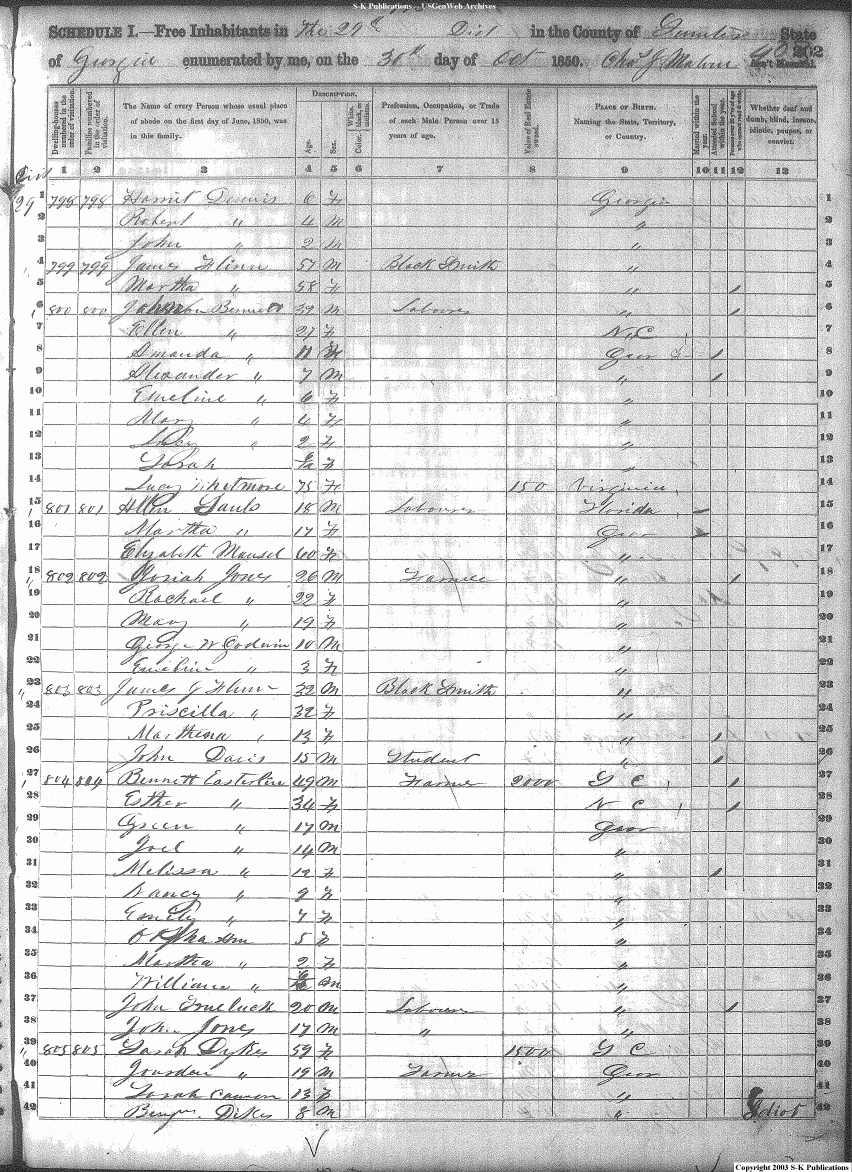 S-K Publications - USGenWeb Archives
SCHEDULE I.—Free Inhabitants in The 29th Dist in the County of Sumter State
of Georgia enumerated by me, on the 30th day of Oct 1850. Chas J. Malone Ass't Marshal. 202
Dwelling-houses numbered in the order of visitation. Families numbered in the order of visitation. The Name of every Person whose usual place of abode on the first day of June, 1850, was in this family. DESCRIPTION. Age. Sex. White, black, or mulatto. Color, Profession, Occupation, or Trade of each Male Person over 15 years of age. Value of Real Estate owned. PLACE OF BIRTH. Naming the State, Territory, or Country. Married within the year. Attended School within the year. Persons over 20 y'rs of age who cannot read & write. Whether deaf and dumb, blind, insane, idiotic, pauper, or convict.
1 2 3 4 5 6 7 8 9 10 11 12 13
Dist 29
1 798 798 Harriet Dennis 6 F Georgia 1
2 Robert " 4 M " 2
3 John " 2 M " 3
4 799 799 James Flinn 57 M Black Smith " 4
5 Martha " 58 F " / 5
6 800 800 Bennett 39 M Labourer " / 6
7 Ellen " 27 F N.C 7
8 Amanda " 11 F Geor / 8
9 Alexander " 7 M " / 9
10 Emeline " 6 F " 10
11 Mary " 4 F " 11
12 " 2 F " 12
13 Sarah F " 13
14 Lucy Whetmore 75 F 150 Virginia 14
15 801 801 Allen Sauls 18 M Labourer Florida / 15
16 Martha " 17 F Geor / 16
17 Elizabeth Mansel 60 F " 17
18 802 802 Josiah Jones 26 M Farmer " / 18
19 Rachael " 22 F " 19
20 Mary " 19 F " 20
21 George W Godwin 10 M " 21
22 Emeline " 3 F " 22
23 803 803 James J Flinn 32 M Black Smith " 23
24 Priscilla " 32 F " 24
25 Marthena " 13 F " / 25
26 John Davis 15 M Student " / 26
27 804 804 Bennett Easterlin 49 M Farmer 2000 S C / 27
28 Esther " 34 F N C / 28
29 Green " 17 M Geor 29
30 Joel " 14 M " 30
31 Melissa " 12 F " / 31
32 Nancy " 9 F " 32
33 Emily " 7 F " 33
34 Orpha Ann 5 F " 34
35 Martha " 2 F " 35
36 William " M " 36
37 John Trueluck 20 M Labourer " / 37
38 John Jones 17 M " " 38
39 805 805 Sarah Dykes 59 F 1500 S C 39
40 Jourdan " 19 M Farmer Geor 40
41 Sarah 13 F " 41
42 Benj. Dikes 8 M " Idiot 42
Copyright 2003 S-K Publications